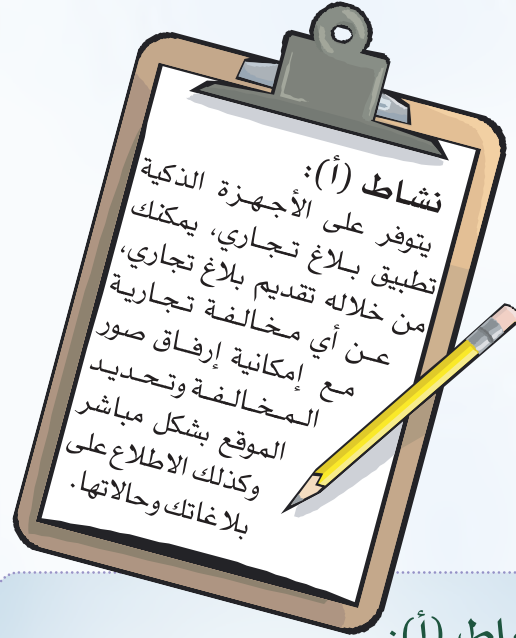 نشاط (أ):
يتوفر على الأجهزة الذكية
تطبيق بلاغ تجاري، يمكنك
من خلاله تقديم بلاغ تجاري،
عن أي مخالفة تجارية
مع إمكانية إرفاق صور
المخالفة وتحديد
الموقع بشكل مباشر
وكذلك الاطلاع على
بلاغاتك وحالاتها.